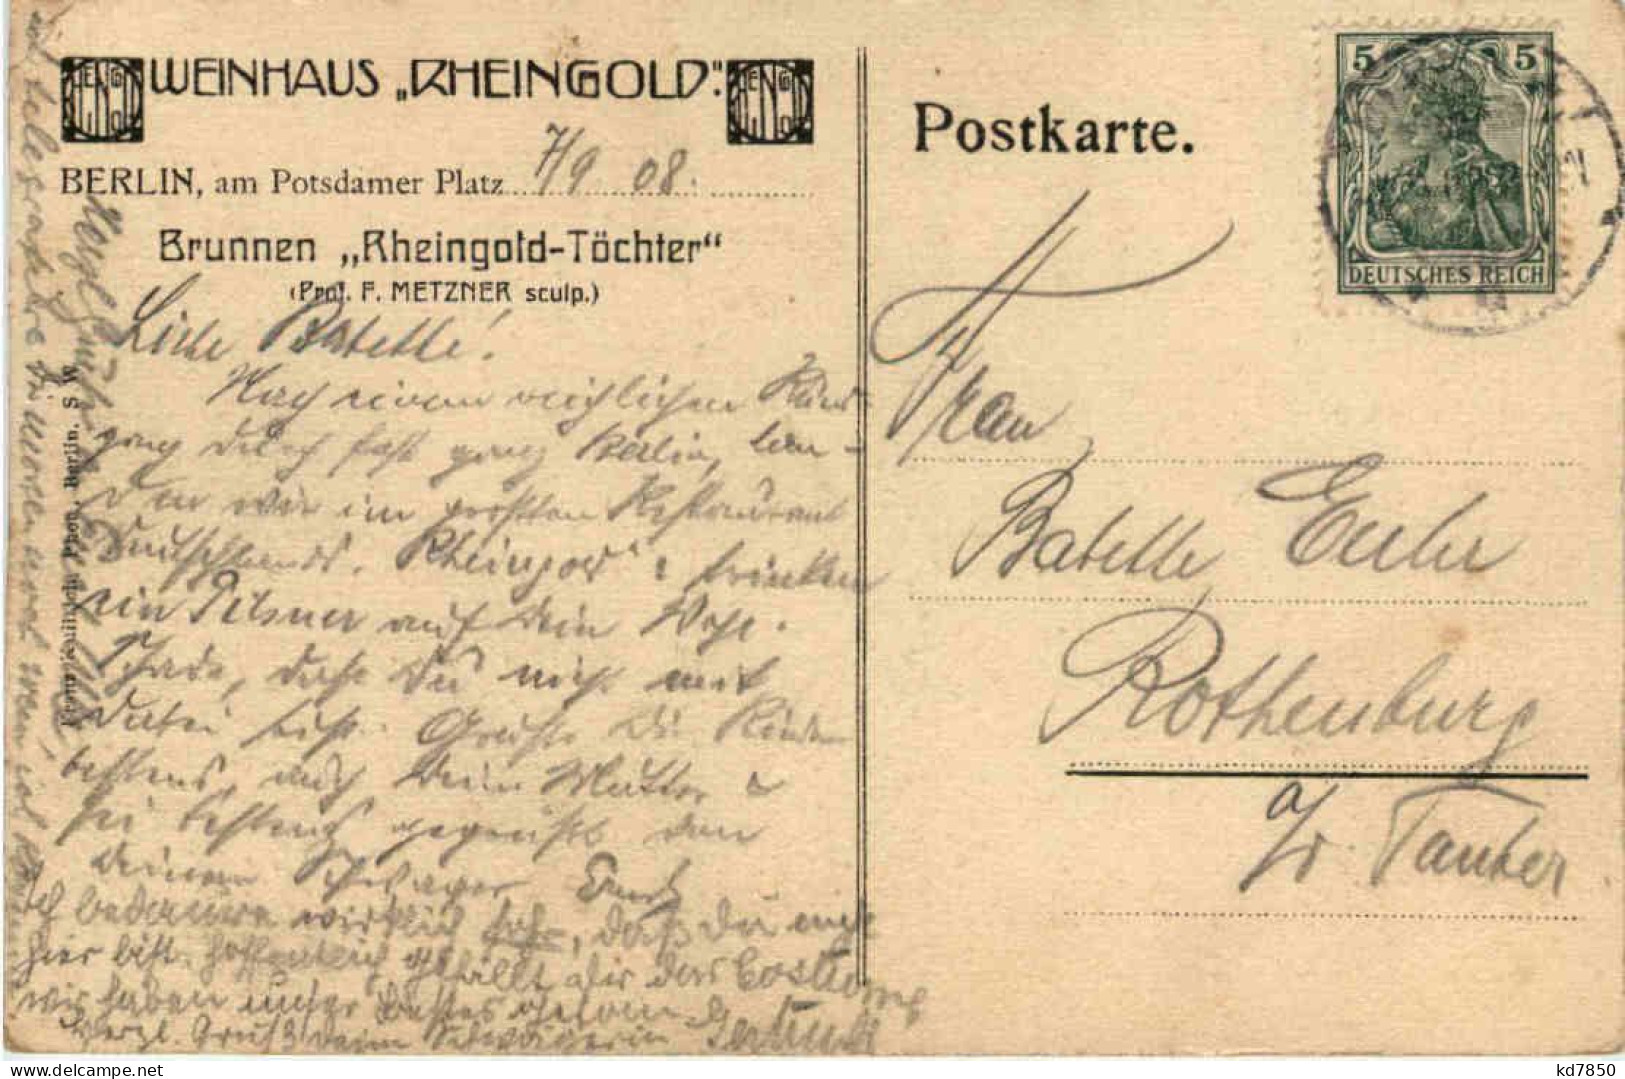 WEINHAUS „RHEINGOLD".
BERLIN, am Potsdamer Platz 7/9 08.
Brunnen „Rheingold-Töchter"
(Prof. F. METZNER sculp.)
Liebe Babette!
Nach einem reichlichen Rund-
gang durch fast ganz Berlin, lan-
den wir im größten Restaurant
Deutschlands. Rheingold & trinken
ein Pilsner auf Dein Wohl.
Schade, daß Du nicht mit
dabei bist. Grüße die Kinder
bestens, auch Deine Mutter &
sei bestens gegrüßt von
Deinem Schwager
Ich bedaure wirklich sehr, daß Du nicht
hier bist. Hoffentlich gefällt dir das Costüme
wir haben unser bestes getan.
Herzl. Gruß Deine Schwägerin
Berlin. S. W.
Postkarte.
5 5
DEUTSCHES REICH
Frau
Babette Euler
Rothenburg
a/d. Tauber
kd7850